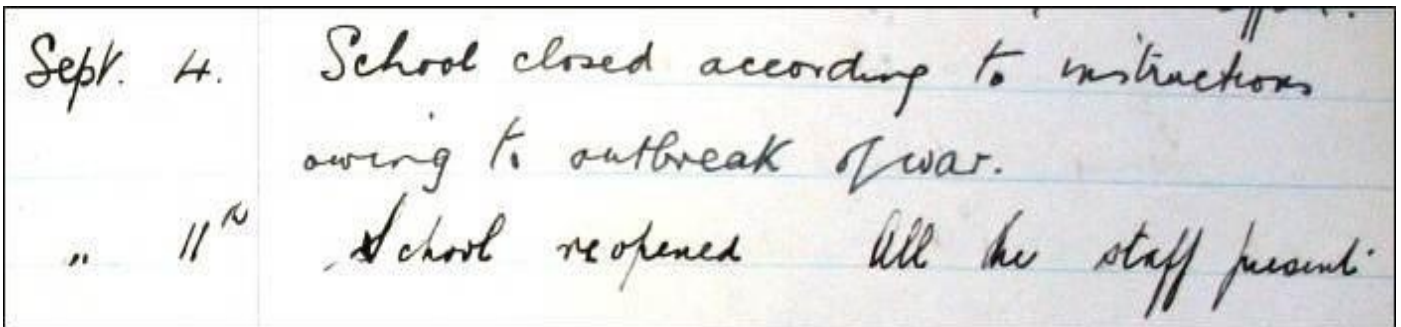 Sept. 4. School closed according to instructions
owing to outbreak of war.
" 11th School reopened All the staff present